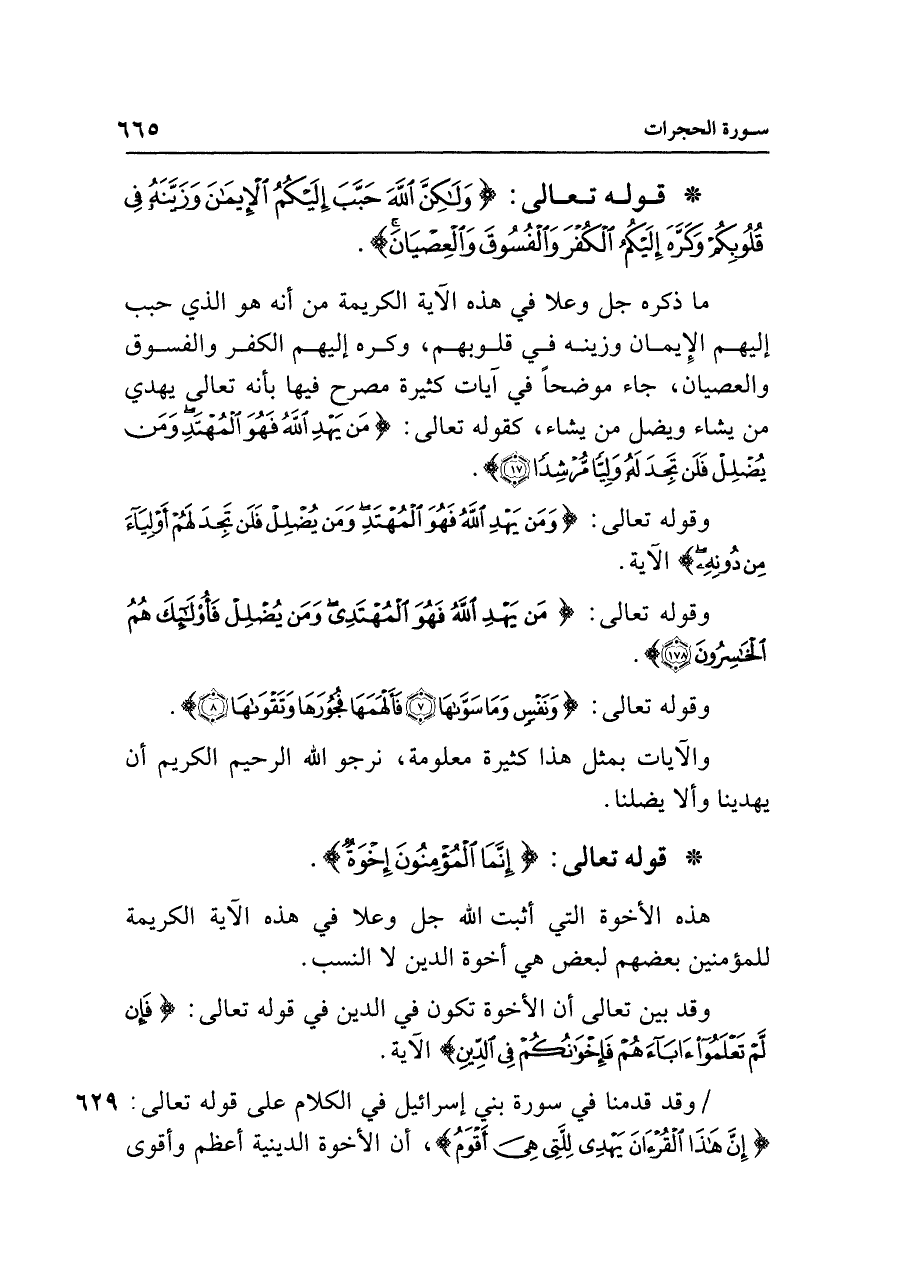 سورة الحجرات ٦٦٥
* قوله تعالى: ﴿ وَلَٰكِنَّ ٱللَّهَ حَبَّبَ إِلَيْكُمُ ٱلْإِيمَٰنَ وَزَيَّنَهُۥ فِى
قُلُوبِكُمْ وَكَرَّهَ إِلَيْكُمُ ٱلْكُفْرَ وَٱلْفُسُوقَ وَٱلْعِصْيَانَۚ﴾ .
ما ذكره جل وعلا في هذه الآية الكريمة من أنه هو الذي حبب
إليهم الإيمان وزينه في قلوبهم، وكره إليهم الكفر والفسوق
والعصيان، جاء موضحاً في آيات كثيرة مصرح فيها بأنه تعالى يهدي
من يشاء ويضل من يشاء، كقوله تعالى: ﴿ مَن يَهْدِ ٱللَّهُ فَهُوَ ٱلْمُهْتَدِۖ وَمَن
يُضْلِلْ فَلَن تَجِدَ لَهُۥ وَلِيًّا مُّرْشِدًا ١٧﴾ .
وقوله تعالى: ﴿ وَمَن يَهْدِ ٱللَّهُ فَهُوَ ٱلْمُهْتَدِۖ وَمَن يُضْلِلْ فَلَن تَجِدَ لَهُمْ أَوْلِيَآءَ
مِن دُونِهِۦۖ﴾ الآية.
وقوله تعالى: ﴿ مَن يَهْدِ ٱللَّهُ فَهُوَ ٱلْمُهْتَدِىۖ وَمَن يُضْلِلْ فَأُو۟لَٰٓئِكَ هُمُ
ٱلْخَٰسِرُونَ ١٧٨﴾ .
وقوله تعالى: ﴿ وَنَفْسٍ وَمَا سَوَّىٰهَا ٧ فَأَلْهَمَهَا فُجُورَهَا وَتَقْوَىٰهَا ٨﴾ .
والآيات بمثل هذا كثيرة معلومة، نرجو الله الرحيم الكريم أن
يهدينا وألا يضلنا.
* قوله تعالى: ﴿ إِنَّمَا ٱلْمُؤْمِنُونَ إِخْوَةٌ﴾ .
هذه الأخوة التي أثبت الله جل وعلا في هذه الآية الكريمة
للمؤمنين بعضهم لبعض هي أخوة الدين لا النسب.
وقد بين تعالى أن الأخوة تكون في الدين في قوله تعالى: ﴿ فَإِن
لَّمْ تَعْلَمُوٓا۟ ءَابَآءَهُمْ فَإِخْوَٰنُكُمْ فِى ٱلدِّينِ﴾ الآية.
/ وقد قدمنا في سورة بني إسرائيل في الكلام على قوله تعالى: ٦٢٩
﴿ إِنَّ هَٰذَا ٱلْقُرْءَانَ يَهْدِى لِلَّتِى هِىَ أَقْوَمُ﴾، أن الأخوة الدينية أعظم وأقوى